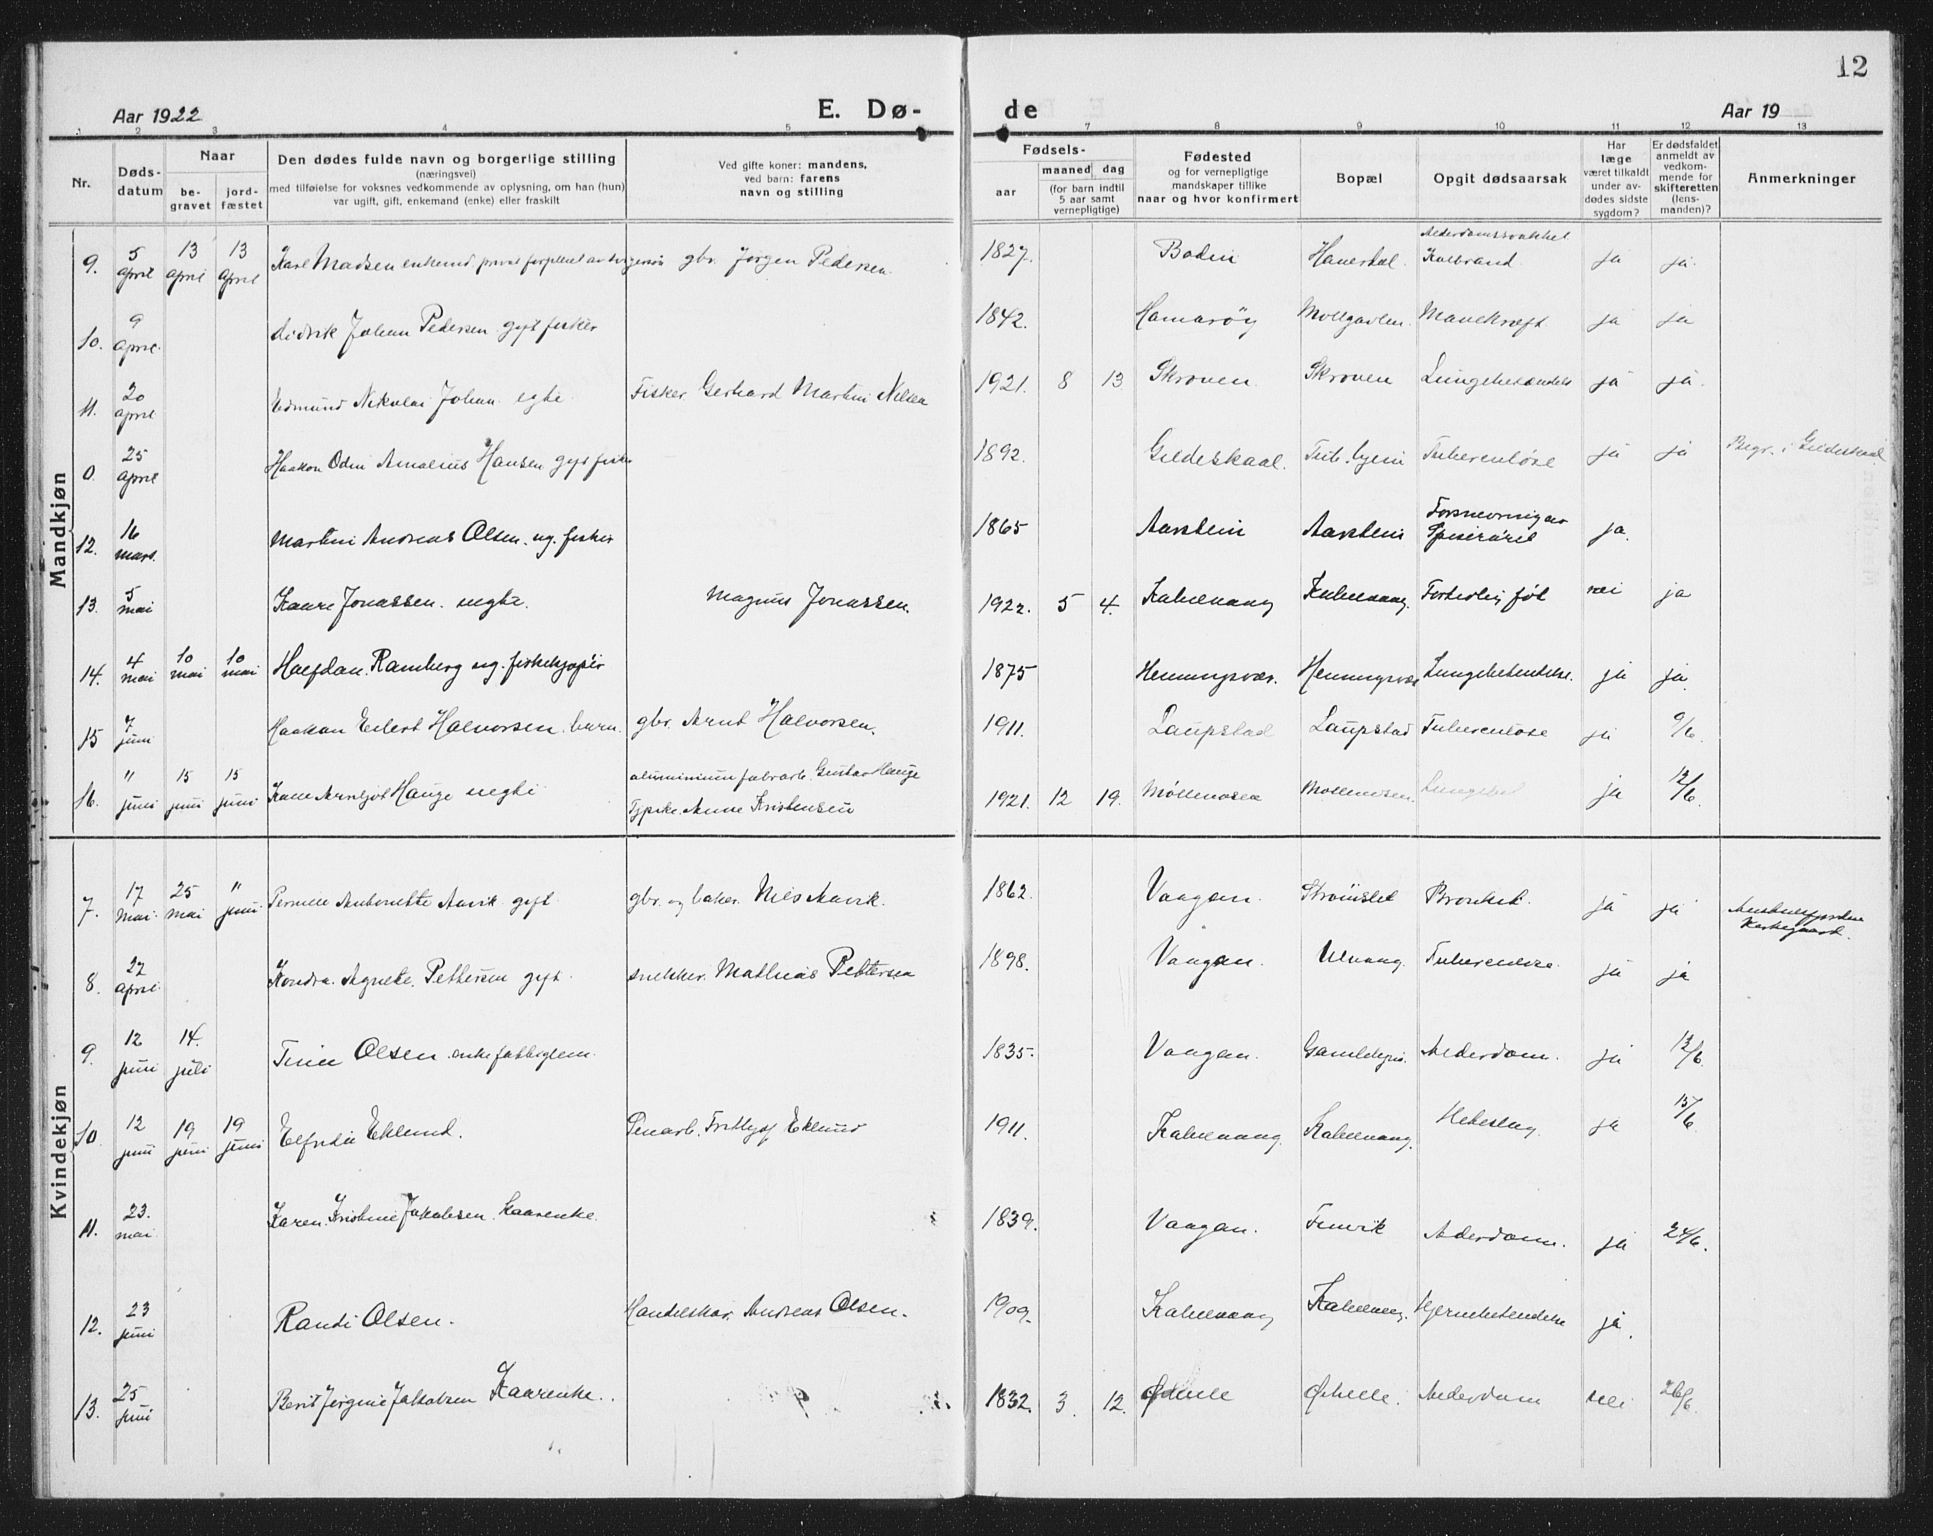 12
Aar 1922
E. Dø-
de
Aar 19
1 2 3 4 5 6 7 8 9 10 11 12 13
Nr.
Døds-
datum
Naar
be-
gravet
jord-
fæstet
Den dødes fulde navn og borgerlige stilling
(næringsvei)
med tilføielse for voksnes vedkommende av oplysning, om han (hun)
var ugift, gift, enkemand (enke) eller fraskilt
Ved gifte koner: mandens,
ved barn: farens
navn og stilling
Fødsels-
aar
maaned dag
(for barn indtil
5 aar samt
vernepligtige)
Fødested
og for vernepligtige
mandskaper tillike
naar og hvor konfirmert
Bopæl
Opgit dødsaarsak
Har
læge
været tilkaldt
under av-
dødes sidste
sygdom?
Er dødsfaldet
anmeldt av
vedkom-
mende for
skifteretten
(lens-
manden)?
Anmerkninger
Mandkjøn
9. 5 april 13 april 13 april Karl Madsen enkemd privat forpleiet av gbr. Jørgen Pedersen 1827. Bodin Alderdomssvakhet Kolbrand ja ja.
10. 9 april. Johan Pedersen gift fisker 1842. Hamarøy Mavekræft ja ja
11. 20 april Edmund Nikolai Johan Fisker. Gerhard Martin Nilsen 1921. 8 13 Skroven Skroven Lungebetændels ja ja.
0. 25 april Haakon Odin Amalius Hansen gift fisker 1892. Gildeskaal. Tub. hjem Tuberculose ja ja Begr. i Gildeskaal
12. 16 mars. Martin Andreas Olsen. ug. fisker 1865 Aarstein Aarstein Spiserøret ja.
13. 5 mai Kaare Jonassen. Magnus Jonassen. 1922. 5 4. Kabelvaag Kabelvaag. Fortidlig føt nei ja
14. 4 mai 10 mai 10 mai Halfdan Ramberg ug. fiskekjøper 1875 Henningsvær. Henningsvær Lungebetendelse. ja ja.
15 7 juni Haakon Eilert Halvorsen. barn. gbr. Arnt Halvorsen. 1911. Laupstad Laupstad Tuberculose ja 9/6.
16. " juni 15 juni 15 juni Hauge aluminium fabrarb. Gustav Hauge
Anne Kristensen 1921. 12 19. ja 12/6.
Kvindekjøn
7. 17 mai. 25 mai " juni. Pernille Antonette Aavik gift gbr. og baker. Nils Aavik. 1862. Vaagan. Bronkit. ja ja
8. 27 april. Agnete Pettersen gift snekker. Mathias Pettersen 1898. Vaagan. Ulvaag. Tuberculose. ja ja
9. 12 juni 14. juli Olsen enke 1835. Vaagan. Alderdom. ja 13/6.
10. 12 juni 19 juni 19 juni Elfrida Eklund. Frithjof Eklund 1911. Kabelvaag. Kabelvaag. Hjerteslag. ja 15/6.
11. 23. mai Karen Kristine Jakobsen. Kaarenke. 1839. Vaagan. Finvik Alderdom. ja 24/6.
12. 23 juni Randi Olsen. Andreas Olsen. 1909. Kabelvaag Kabelvaag. Hjernebetendelse ja.
13. 25 juni Berit Jørgine Jakobsen Kaarenke. 1832. 3. 12. Ørhelle Ørhelle. Alderdom nei 26/6.